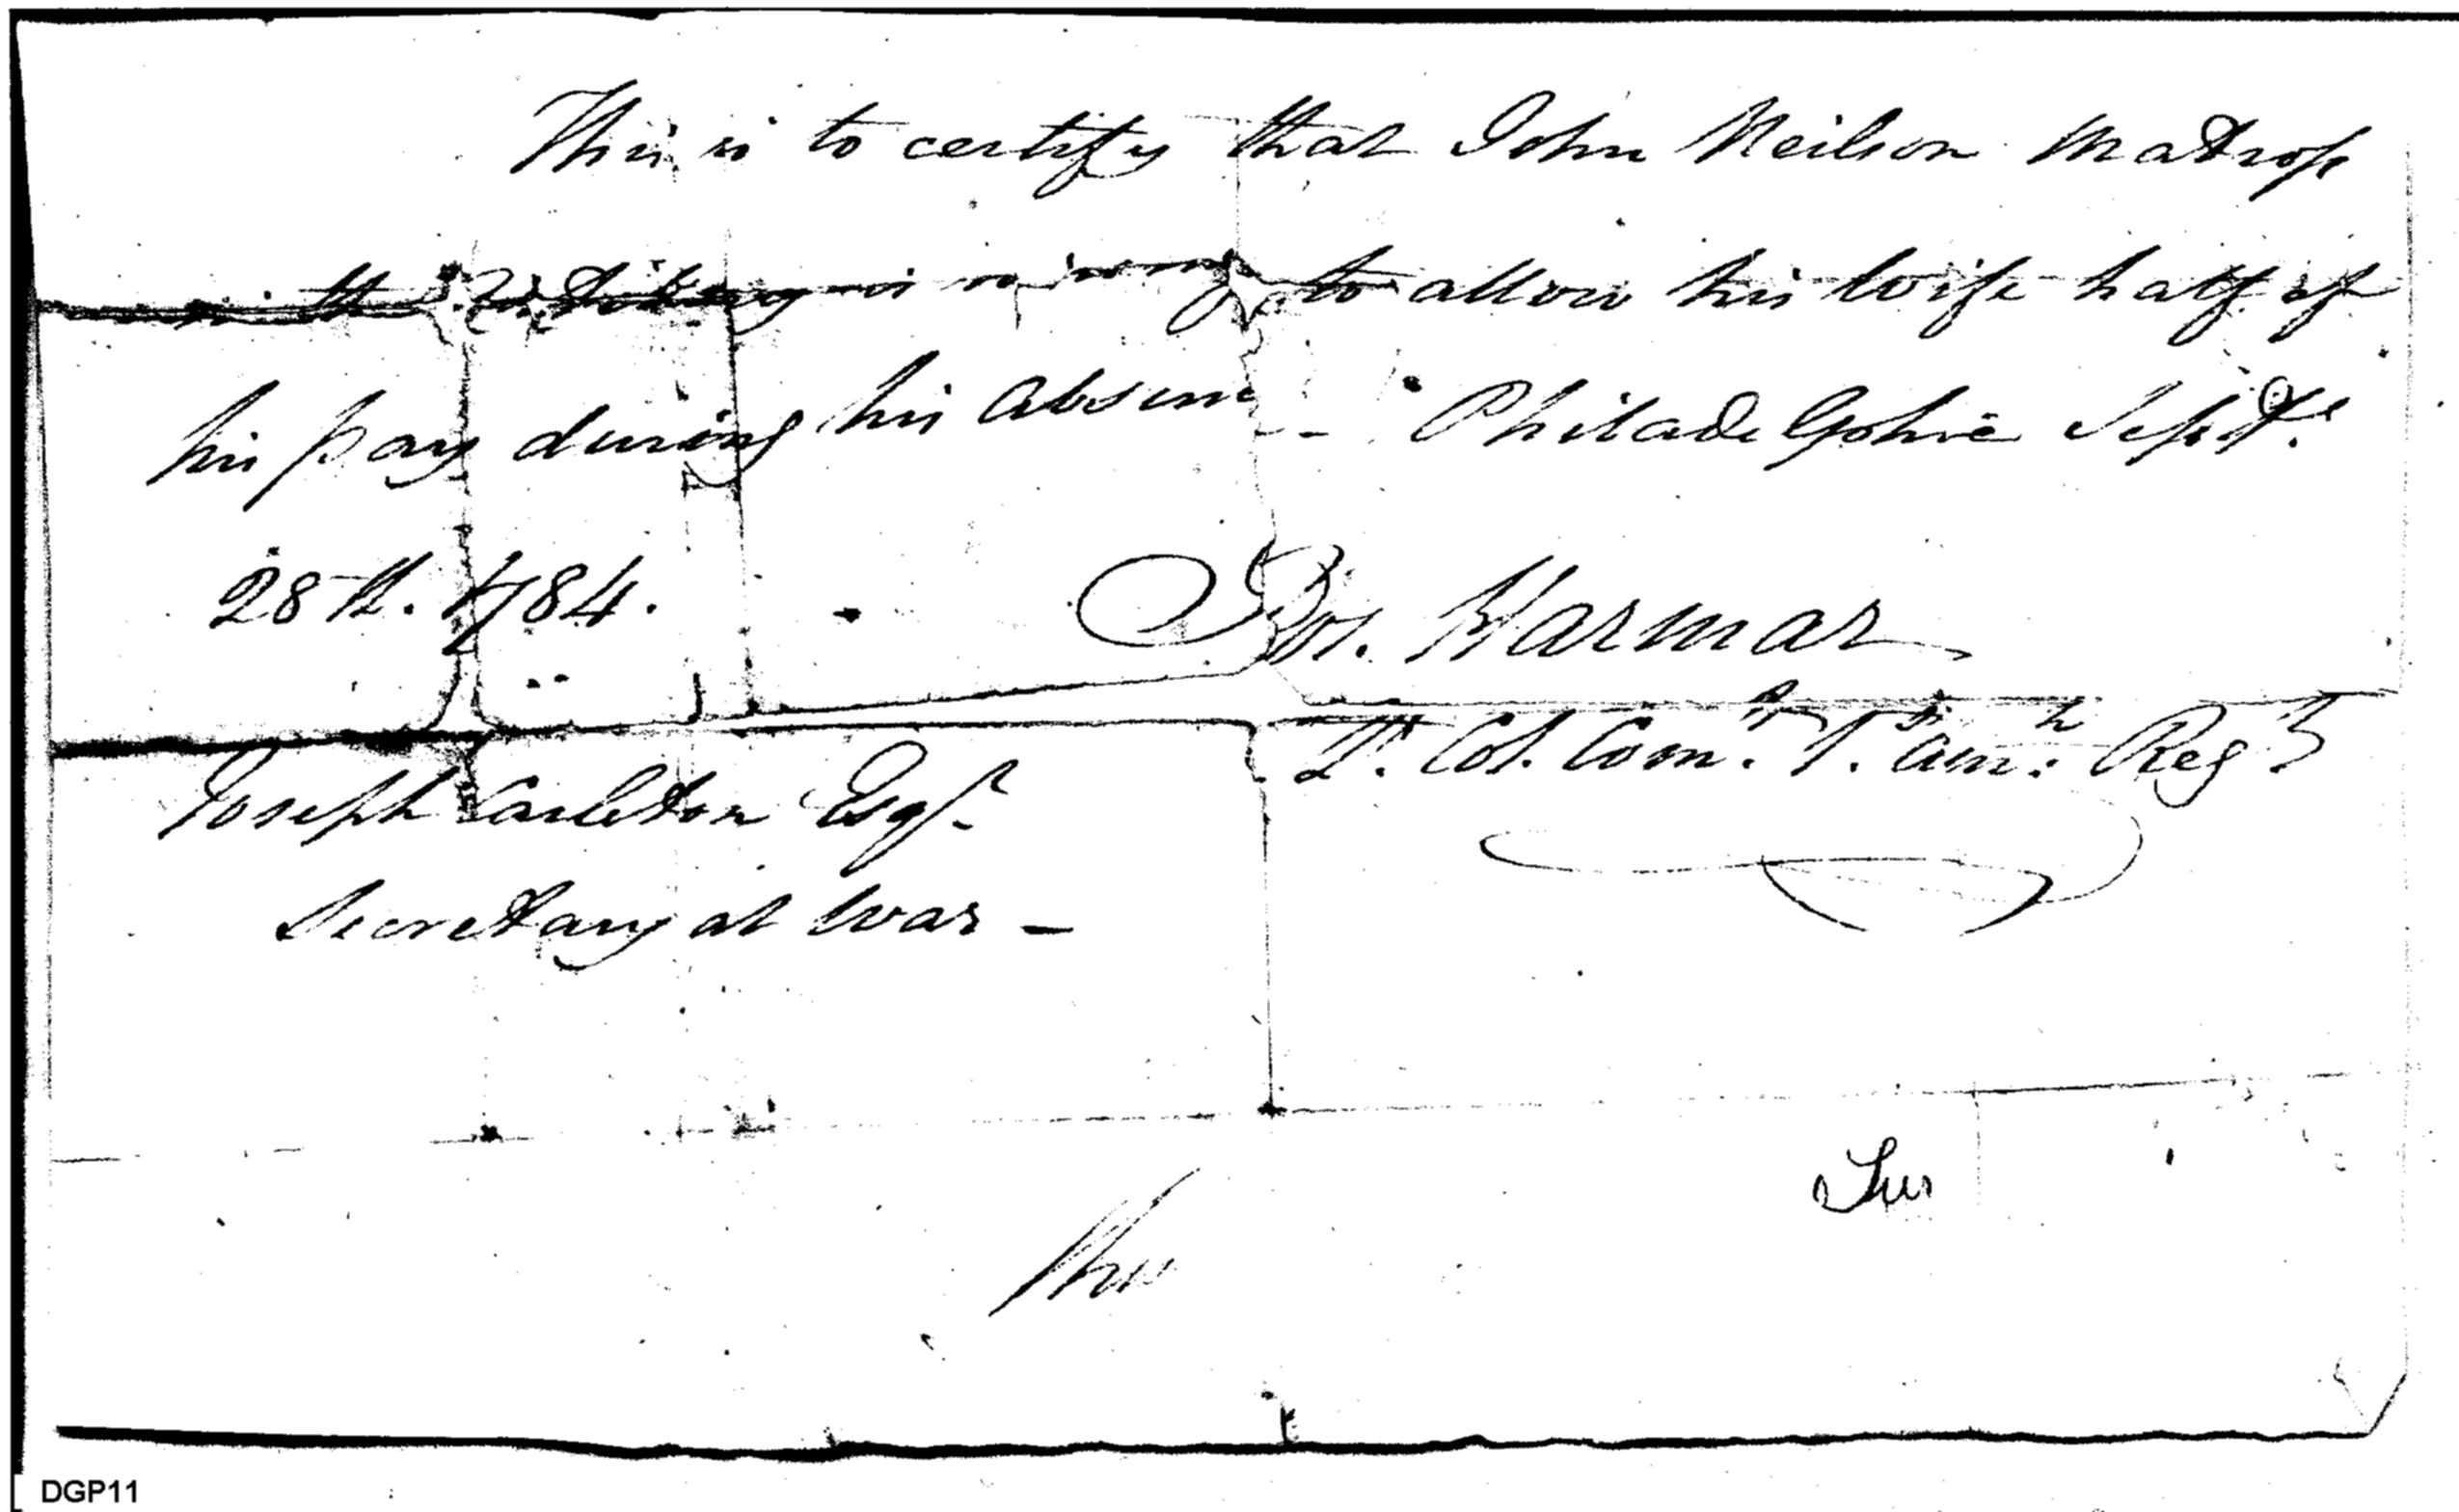 This is to certify that John Neilson Matross
in the Artillery is willing to allow his wife half of
his pay during his absence - - Philadelphia Septr.
28th. 1784.
Jos. Harmar
Lt. Col. Comt. 1st. Amn. Regt
Joseph Carleton Esqr.
Secretary at War -
DGP11